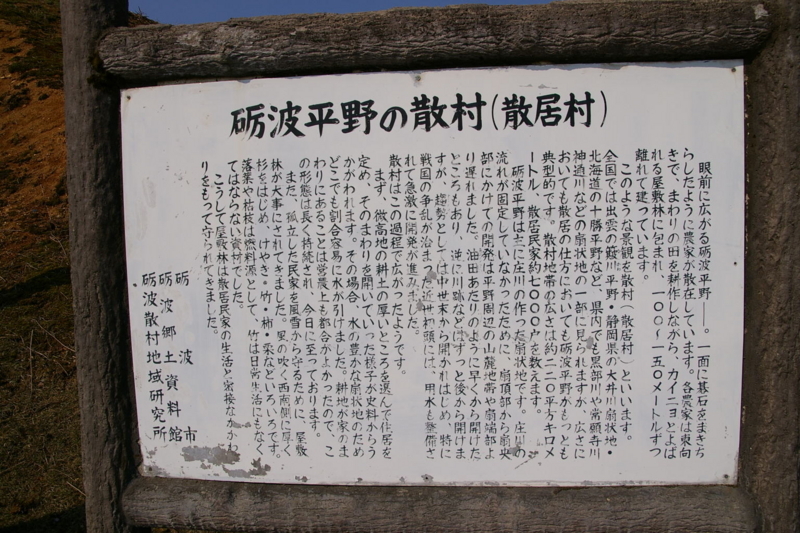 砺波平野の散村(散居村)
眼前に広がる砺波平野――。一面に碁石をまきち
らしたように農家が散在しています。各農家は東向
きで、まわりの田を耕作しながら、カイニョとよば
れる屋敷林に包まれ、一〇〇〜一五〇メートルずつ
離れて建っています。
このような景観を散村(散居村)といいます。
全国では出雲の簸川平野・静岡県の大井川扇状地・
北海道の十勝平野など、県内でも黒部川や常願寺川
神通川などの扇状地の一部に見られますが、広さに
おいても散居の仕方においても砺波平野がもっとも
典型的です。散村地帯の広さは約二二〇平方キロメ
ートル、散居民家約七〇〇〇戸を数えます。
砺波平野は主に庄川の作った扇状地です。庄川の
流れが固定していなかったために、扇頂部から扇央
部にかけての開発は平野周辺の山麓地帯や扇端部よ
り遅れました。油田あたりのように早くから開けた
ところもあり、逆に川跡などはずっと後から開けま
すが、趨勢としては中世末から開かれはじめ、特に
戦国の争乱が治まった近世初頭には、用水も整備さ
れて急激に開発が進みました。
散村はこの過程で広がったようです。
まず、微高地の耕土の厚いところを選んで住居を
定め、そのまわりを開いていった様子が史料からう
かがわれます。その場合、水の豊かな扇状地のため
どこでも割合容易に水が引けました。耕地が家のま
わりにあることは営農上も都合がよかったので、こ
の形態は長く持続され、今日に至っております。
また、孤立した民家を風雪から守るために、屋敷
林が大事にされてきました。風の吹く西南側に厚く
杉をはじめ、けやき・竹・柿・栗などいろいろです。
落葉や枯枝は燃料源として、竹は日常生活にもなく
てはならない資材でした。
こうして屋敷林は散居民家の生活と密接なかかわ
りをもって守られてきました。
砺波市
砺波郷土資料館
砺波散村地域研究所